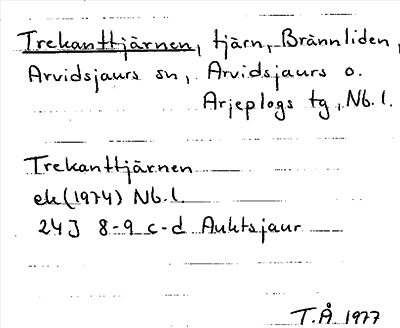 Trekanttjärnen, tjärn, Brännliden,
Arvidsjaurs sn, Arvidsjaurs o.
Arjeplogs tg, Nb. l.
Trekanttjärnen
ek (1974) Nb. l.
24J 8-9 c-d Auktsjaur
T.Å 1977